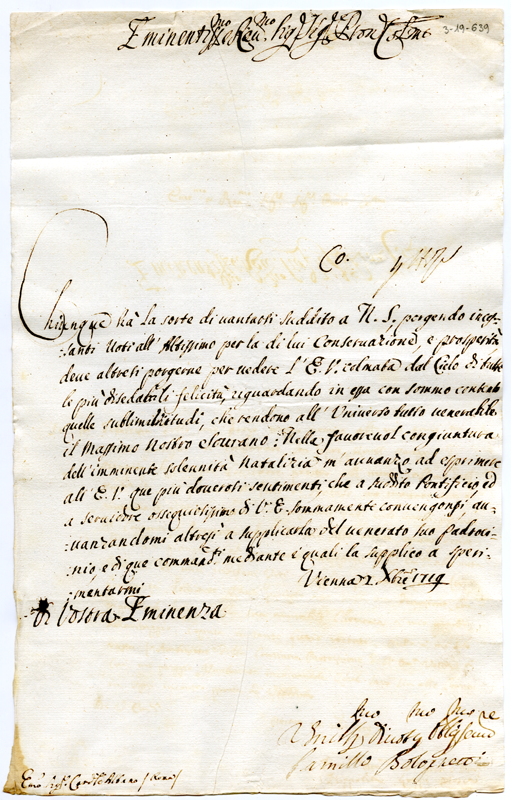 Eminent.mo e Reu.mo Sig.r Sig.r Pron Col.mo
3-19-639
Co.
Chiunque hà la sorte di uantarsi suddito a N. S. porgendo inces-
:santi Uoti all' Altissimo per la di lui Conseruazione, e prosperità
deue altresì porgerne per uedere l' E. V. colmata dal Cielo di tutte
le più desiderabili felicità, riguardando in essa con sommo contento
quelle sublimi uirtudi, che rendono all' Uniuerso tutto uenerabile
il Massimo nostro Sourano: Nella fauoreuol congiuntura
dell' imminente solennità Natalizia m' auuanzo ad esprimere
all' E. V. que più douerosi sentimenti, che a suddito Pontificio, ed
a seruidore ossequiosissimo di V. E. sommamente conuengonsi, au-
:uanzandomi altresì a supplicarla del uenerato suo Padroci-
:nio, e di que commandi, mediante i quali la supplico a speri-
:mentarmi
Vienna 2 Xbre 1719
Di Vostra Eminenza
Umil.mo Diuot.mo Obl.mo Seru.re
Camillo Bolognetti
Emo Sig.r Card.le Albano / Roma /